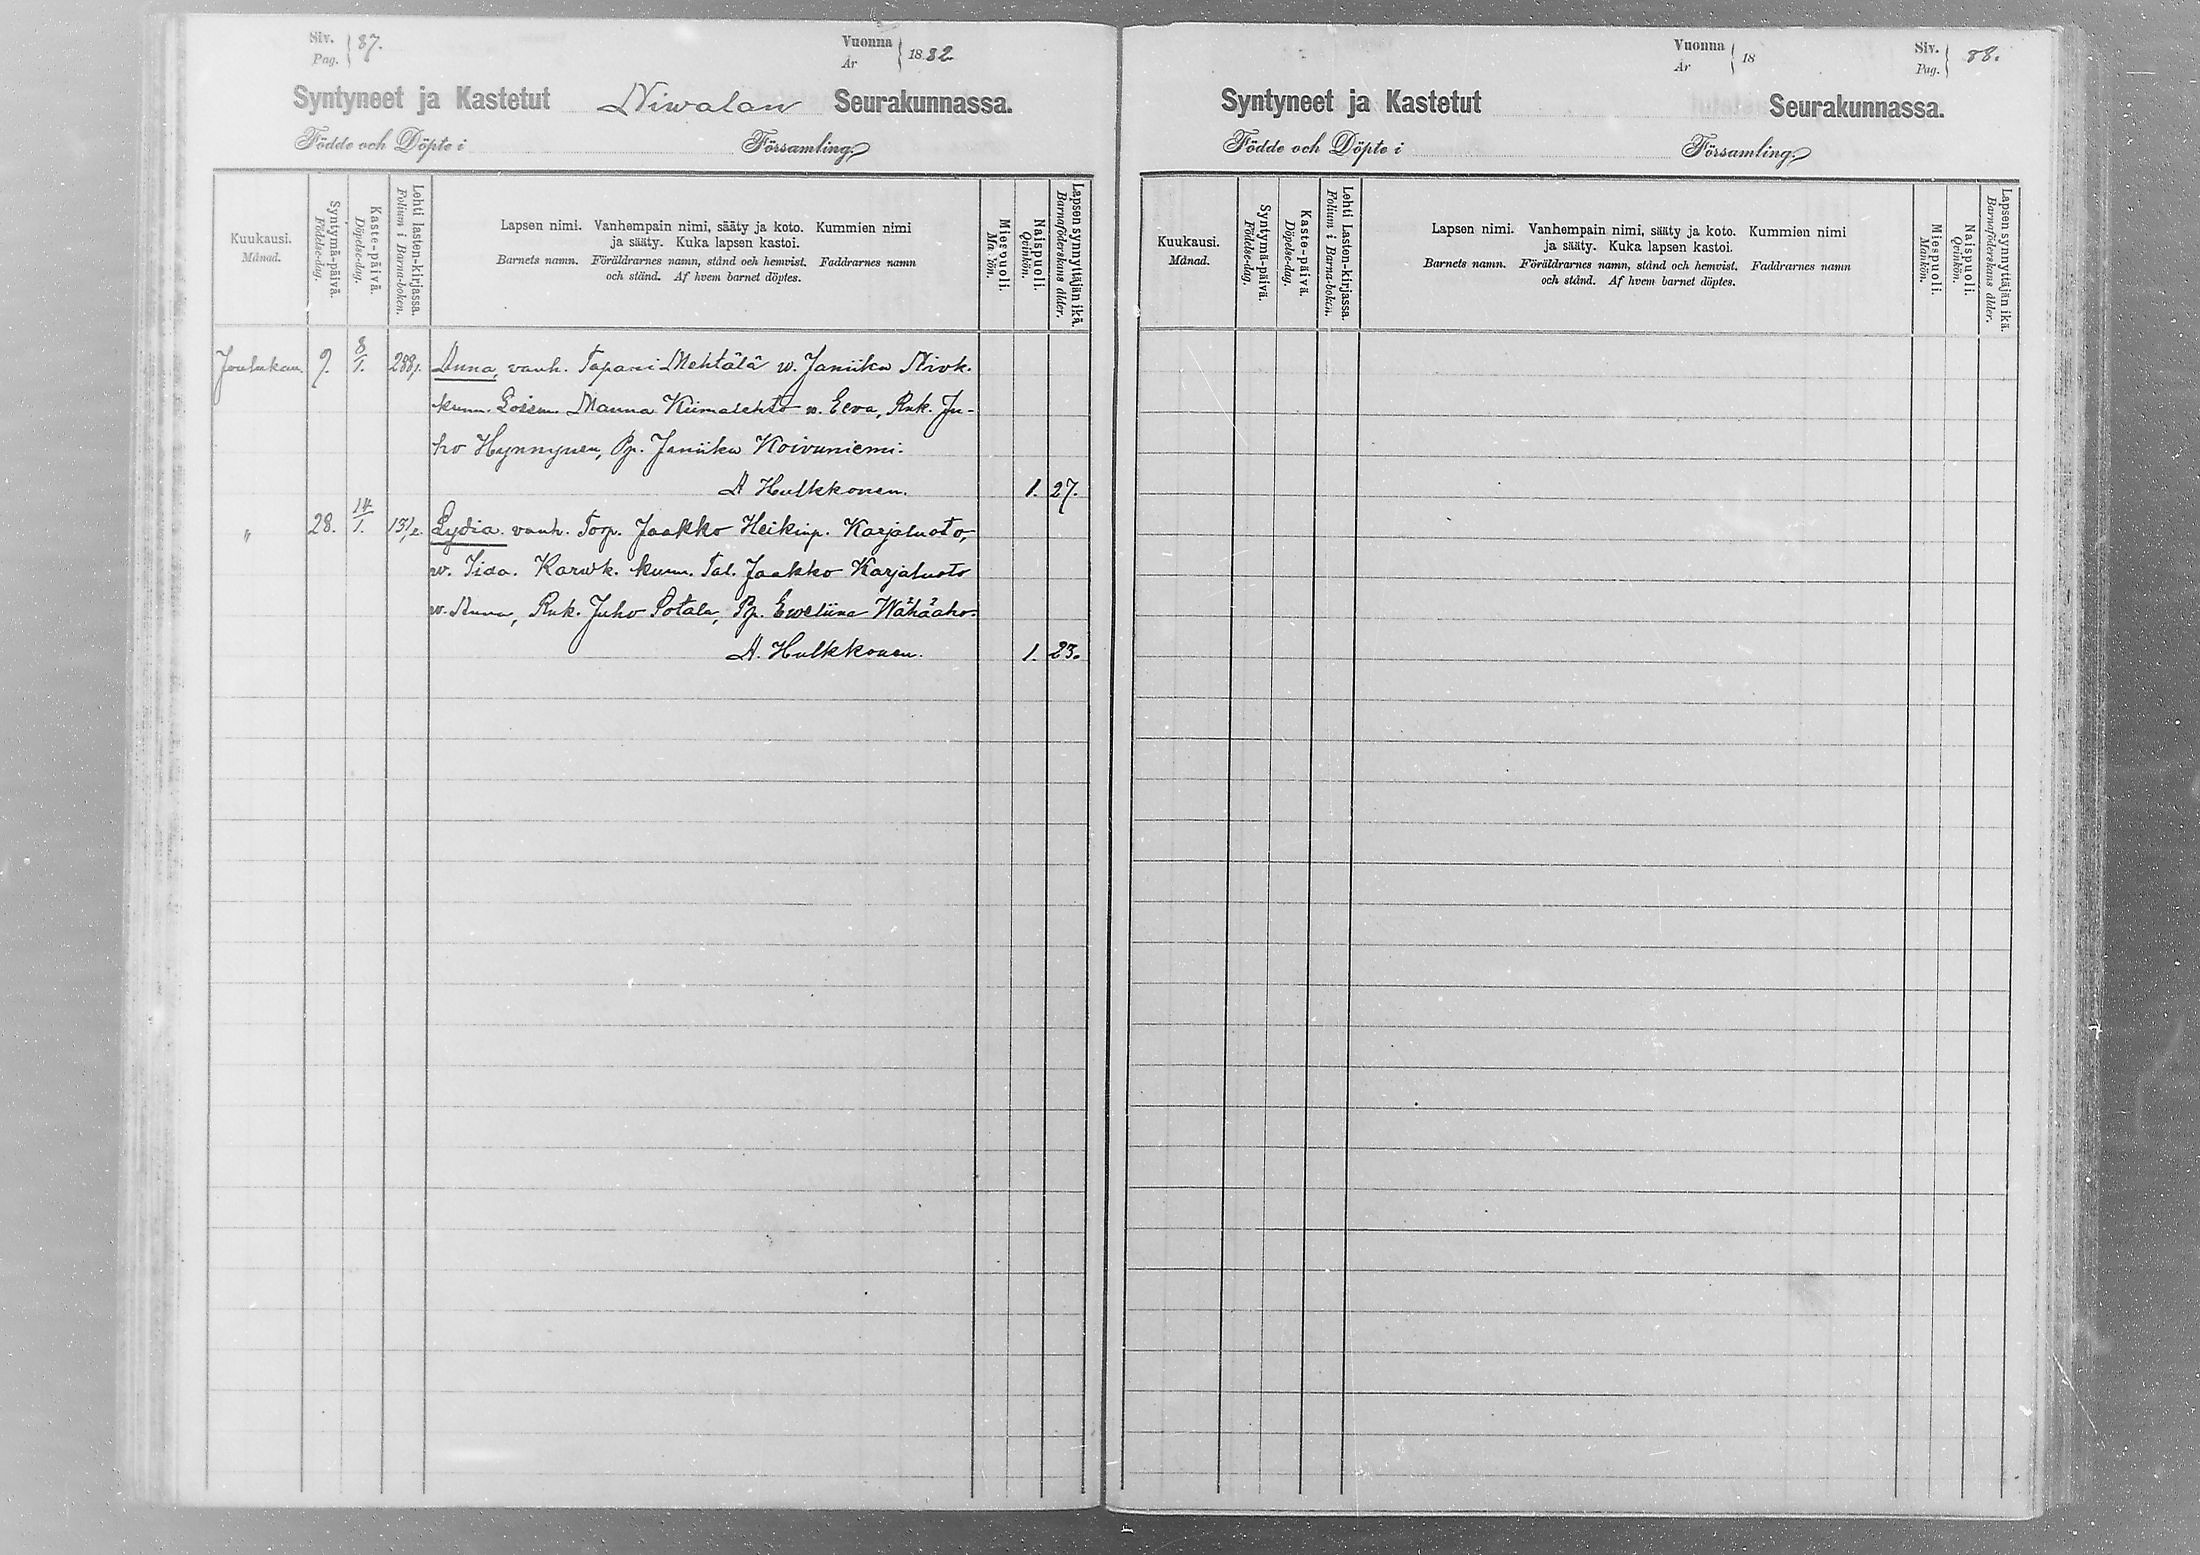 Siv. Pag. 87.
Vuonna År 1882.
Syntyneet ja Kastetut Niwalan Seurakunnassa.
Födde och Döpte i Församling.
Kuukausi. Månad.
Syntymä-päivä. Födelse-dag.
Kaste-päivä. Döpelse-dag.
Lehti lasten-kirjassa. Folium i Barna-boken.
Lapsen nimi. Vanhempain nimi, sääty ja koto. Kummien nimi
ja sääty. Kuka lapsen kastoi.
Barnets namn. Föräldrarnes namn, stånd och hemvist. Faddrarnes namn
och stånd. Af hvem barnet döptes.
Miespuoli.
Naispuoli. Qvinkön.
Lapsen synnyttäjän ikä. Barnaföderskans ålder.
Joulukuu. 9. 8/1. 288 Anna, vanh. Tapani Mehtälä w. Janiika
kumm. Manna Kiimalehto w. Eeva, Rnk. Ju-
ho Hynnynen, Pp. Janiika Koivuniemi.
A Hulkkonen. 1. 27.
" 28. 14/1. 131 Lydia. vanh. Torp. Jaakko Heikinp. Karjaluoto,
w. Iida. Karwk. kumm. Tal. Jaakko Karjaluoto
w. Anna, Rnk. Juho Potala, Pp. Eweliina Wähäaho.
A. Hulkkonen. 1. 23.
Vuonna År 18
Siv. Pag. 88.
Syntyneet ja Kastetut Seurakunnassa.
Födde och Döpte i Församling.
Kuukausi. Månad.
Syntymä-päivä. Födelse-dag.
Kaste-päivä. Döpelse-dag.
Lehti Lasten-kirjassa. Folium i Barna-boken.
Lapsen nimi. Vanhempain nimi, sääty ja koto. Kummien nimi
ja sääty. Kuka lapsen kastoi.
Barnets namn. Föräldrarnes namn, stånd och hemvist. Faddrarnes namn
och stånd. Af hvem barnet döptes.
Miespuoli. Mankön.
Naispuoli. Qvinkön.
Lapsen synnyttäjän ikä. Barnaföderskans ålder.